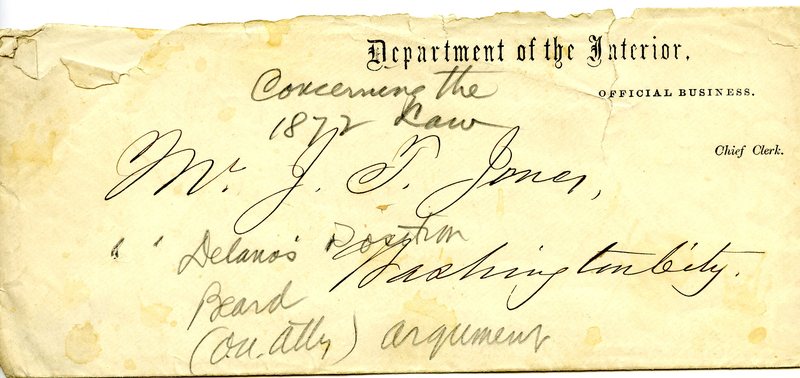 Department of the Interior,
OFFICIAL BUSINESS.
Chief Clerk.
Concerning the
1872 Law
Mr. J. T. Jones,
" " Delano's Position
Washington City.
Beard
(Atty) argument